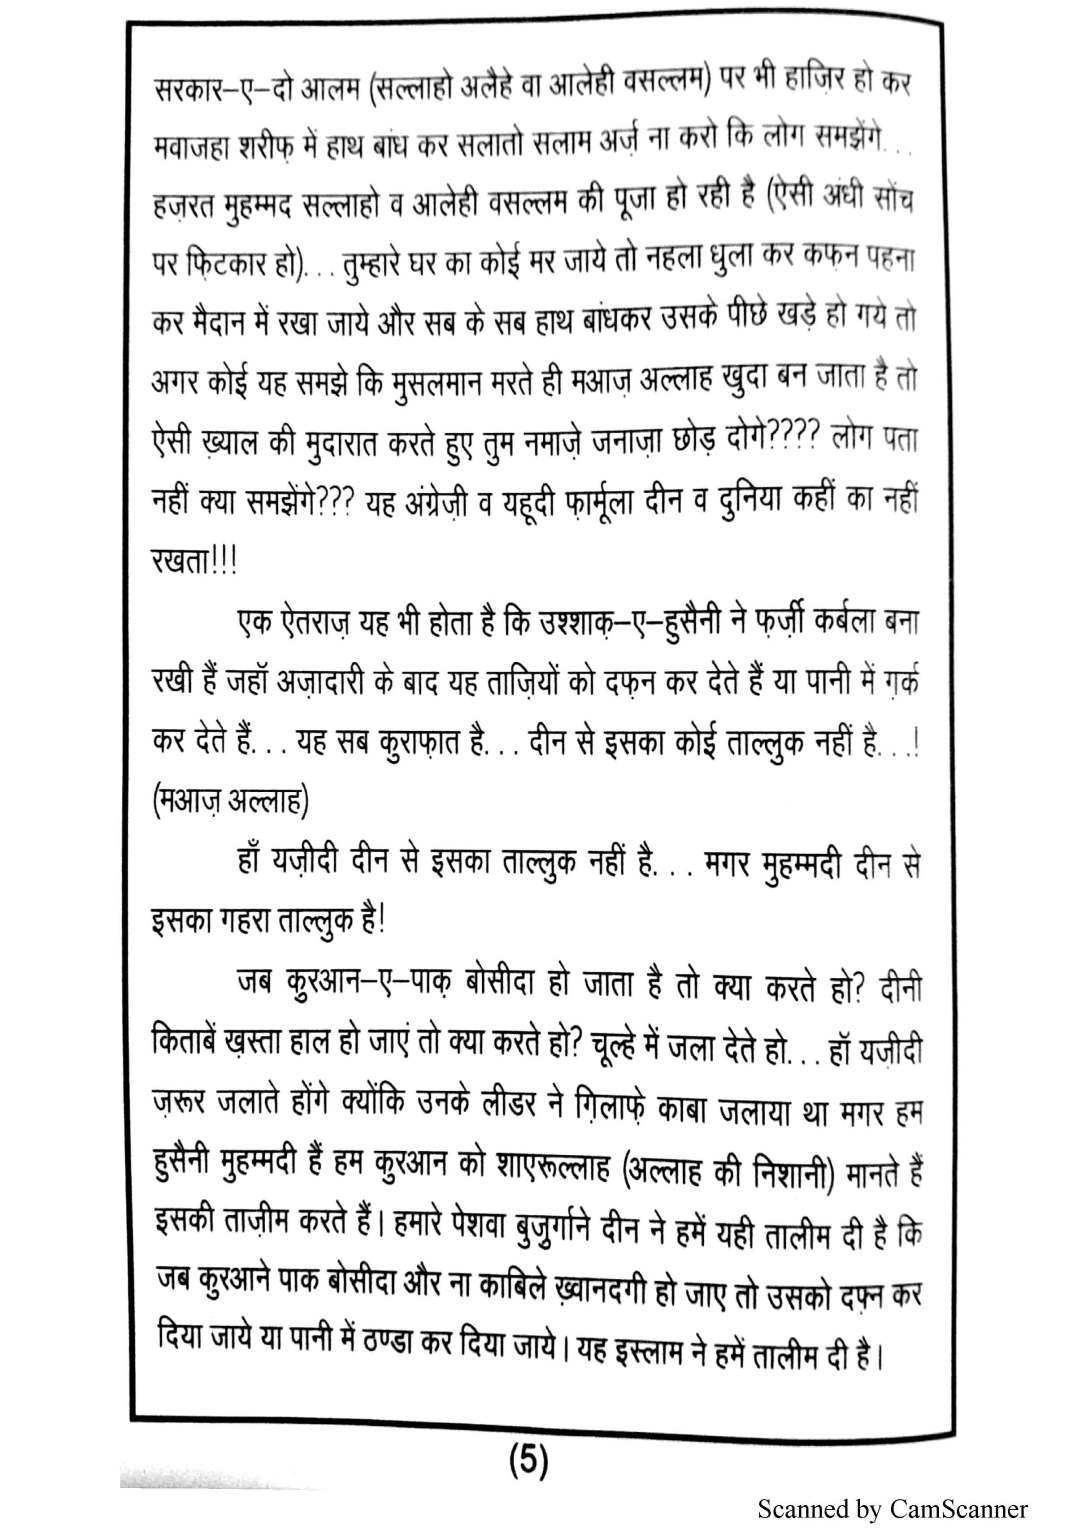 सरकार–ए–दो आलम (सल्लाहो अलैहे वा आलेही वसल्लम) पर भी हाज़िर हो कर
मवाजहा शरीफ़ में हाथ बांध कर सलातो सलाम अर्ज़ ना करो कि लोग समझेंगे...
हज़रत मुहम्मद सल्लाहो व आलेही वसल्लम की पूजा हो रही है (ऐसी अंधी सोंच
पर फ़िटकार हो)... तुम्हारे घर का कोई मर जाये तो नहला धुला कर कफ़न पहना
कर मैदान में रखा जाये और सब के सब हाथ बांधकर उसके पीछे खड़े हो गये तो
अगर कोई यह समझे कि मुसलमान मरते ही मआज़ अल्लाह खुदा बन जाता है तो
ऐसी ख़्याल की मुदारात करते हुए तुम नमाज़े जनाज़ा छोड़ दोगे???? लोग पता
नहीं क्या समझेंगे??? यह अंग्रेज़ी व यहूदी फ़ार्मूला दीन व दुनिया कहीं का नहीं
रखता!!!
एक ऐतराज़ यह भी होता है कि उश्शाक़–ए–हुसैनी ने फ़र्ज़ी कर्बला बना
रखी हैं जहॉ अज़ादारी के बाद यह ताज़ियों को दफ़न कर देते हैं या पानी में ग़र्क
कर देते हैं... यह सब कुराफ़ात है... दीन से इसका कोई ताल्लुक नहीं है...!
(मआज़ अल्लाह)
हाँ यज़ीदी दीन से इसका ताल्लुक नहीं है... मगर मुहम्मदी दीन से
इसका गहरा ताल्लुक है!
जब कुरआन–ए–पाक़ बोसीदा हो जाता है तो क्या करते हो? दीनी
किताबें ख़स्ता हाल हो जाएं तो क्या करते हो? चूल्हे में जला देते हो... हॉ यज़ीदी
ज़रूर जलाते होंगे क्योंकि उनके लीडर ने ग़िलाफ़े काबा जलाया था मगर हम
हुसैनी मुहम्मदी हैं हम कुरआन को शाएरूल्लाह (अल्लाह की निशानी) मानते हैं
इसकी ताज़ीम करते हैं। हमारे पेशवा बुजुर्गाने दीन ने हमें यही तालीम दी है कि
जब कुरआने पाक बोसीदा और ना काबिले ख़्वानदगी हो जाए तो उसको दफ़्न कर
दिया जाये या पानी में ठण्डा कर दिया जाये। यह इस्लाम ने हमें तालीम दी है।
(5)
Scanned by CamScanner